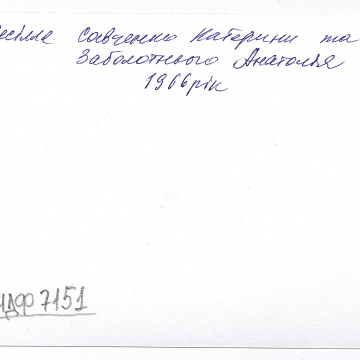 есілля Савченко Катерини та
Заболотнього Анатолія
1966рік
НДФ7151